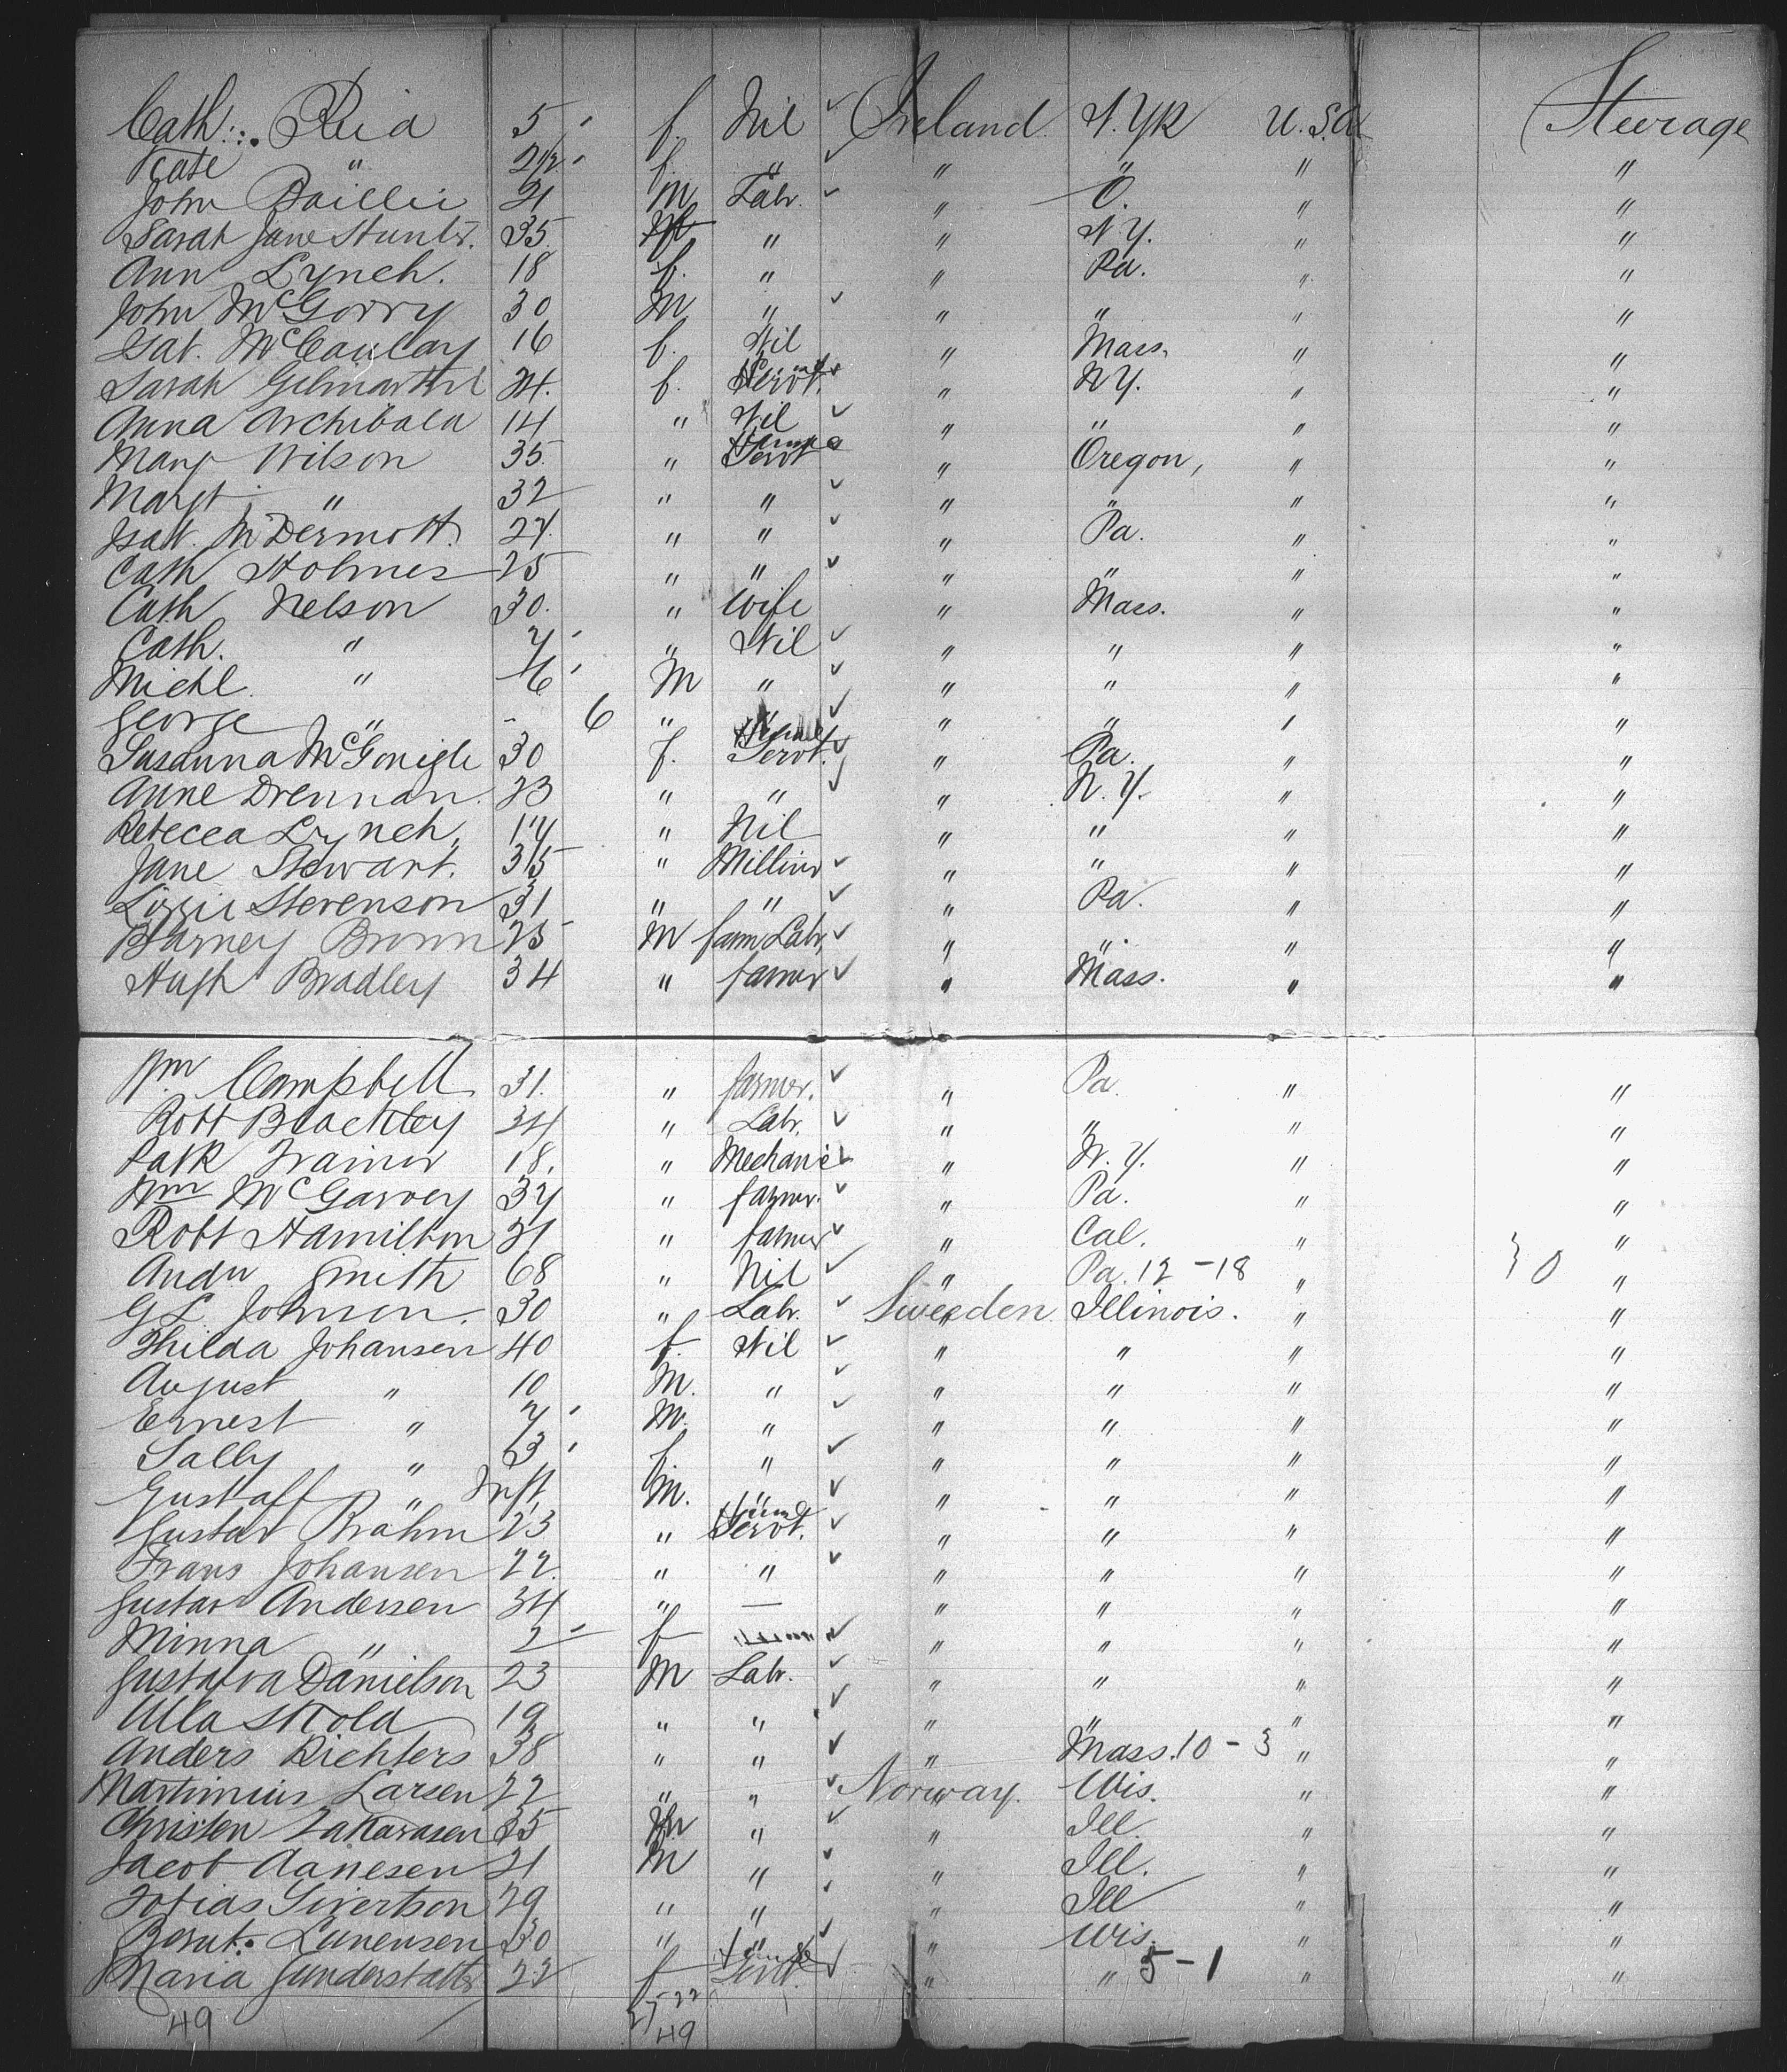 Cath: Reid 5 f. Nil Ireland N. Yk U.S.A Steerage
Kate " 2 1/2 f. " " " " "
John Baillie 21 M Labr. " O. " "
Sarah Jane Hunter. 35 f " " N Y. " "
Ann Lynch. 18 f. " " Pa. " "
John McGorry 30 M " " " " "
Isab. McCaulay 16 f. Nil " Mass. " "
Sarah Gilmartin 24. f. Servt. " N Y. " "
Anna Archibald 14 " Nil " " " "
Mary Wilson 35. " Servt " Oregon, " "
Margt " 32 " " " " " "
Isab. McDermott. 24. " " " Pa. " "
Cath Holmes 25 " " " " " "
Cath Nelson 30. " Wife " Mass. " "
Cath. " 7 " Nil " " " "
Michl. " 6 M " " " " "
George " - 6 " " " " " "
Susanna McGonigle 30 f. Servt. " Pa. " "
Anne Drennan. 23 " " " N. Y. " "
Rebecca Lynch, 17 " Nil " " " "
Jane Stewart. 35 " Milliner " " " "
Lizzie Stevenson 31 " " " Pa. " "
Barney Brown 25 M farm Labr " " " "
Hugh Bradley 34 " farmer " Mass. " "
Wm Campbell 31. " farmer. " Pa. " "
Robt Blackley 34 " Labr. " " " "
Patk Trainer 18. " Mechanic " N. Y. " "
Wm McGarvey 37 " farmer. " Pa. " "
Robt Hamilton 21 " farmer " Cal. " "
Andw Smith 68 " Nil " Pa. 12 - 18 " 30 "
G L Johnson. 30 " Labr. Sweeden Illinois. " "
Thilda Johansen 40 f Nil " " " "
August " 10 M. " " " " "
Ernest " 7 M. " " " " "
Sally " 3 f. " " " " "
Gustaff " Inft M. " " " " "
Gustav Brahm 23 " Servt. " " " "
Frans Johansen 22. " " " " " "
Gustav Andersen 34 " — " " " "
Minna " 2 f " " " "
Gustafva Danielson 23 M Labr. " " " "
Ulla Skold 19 " " " " " "
Anders Richters 38 " " " Mass. 10 - 3 " "
Martinius Larsen 22 " " Norway. Wis. " "
Christen Zakarasen 35 M " " Ill. " "
Jacob Aanesen 21 M " " Ill. " "
Tobias Sivertson 29 " " " Ill " "
Bernt. 30 " " " Wis. " "
Maria 22 f Servt. " " 5 - 1 " "
49 27 22
49